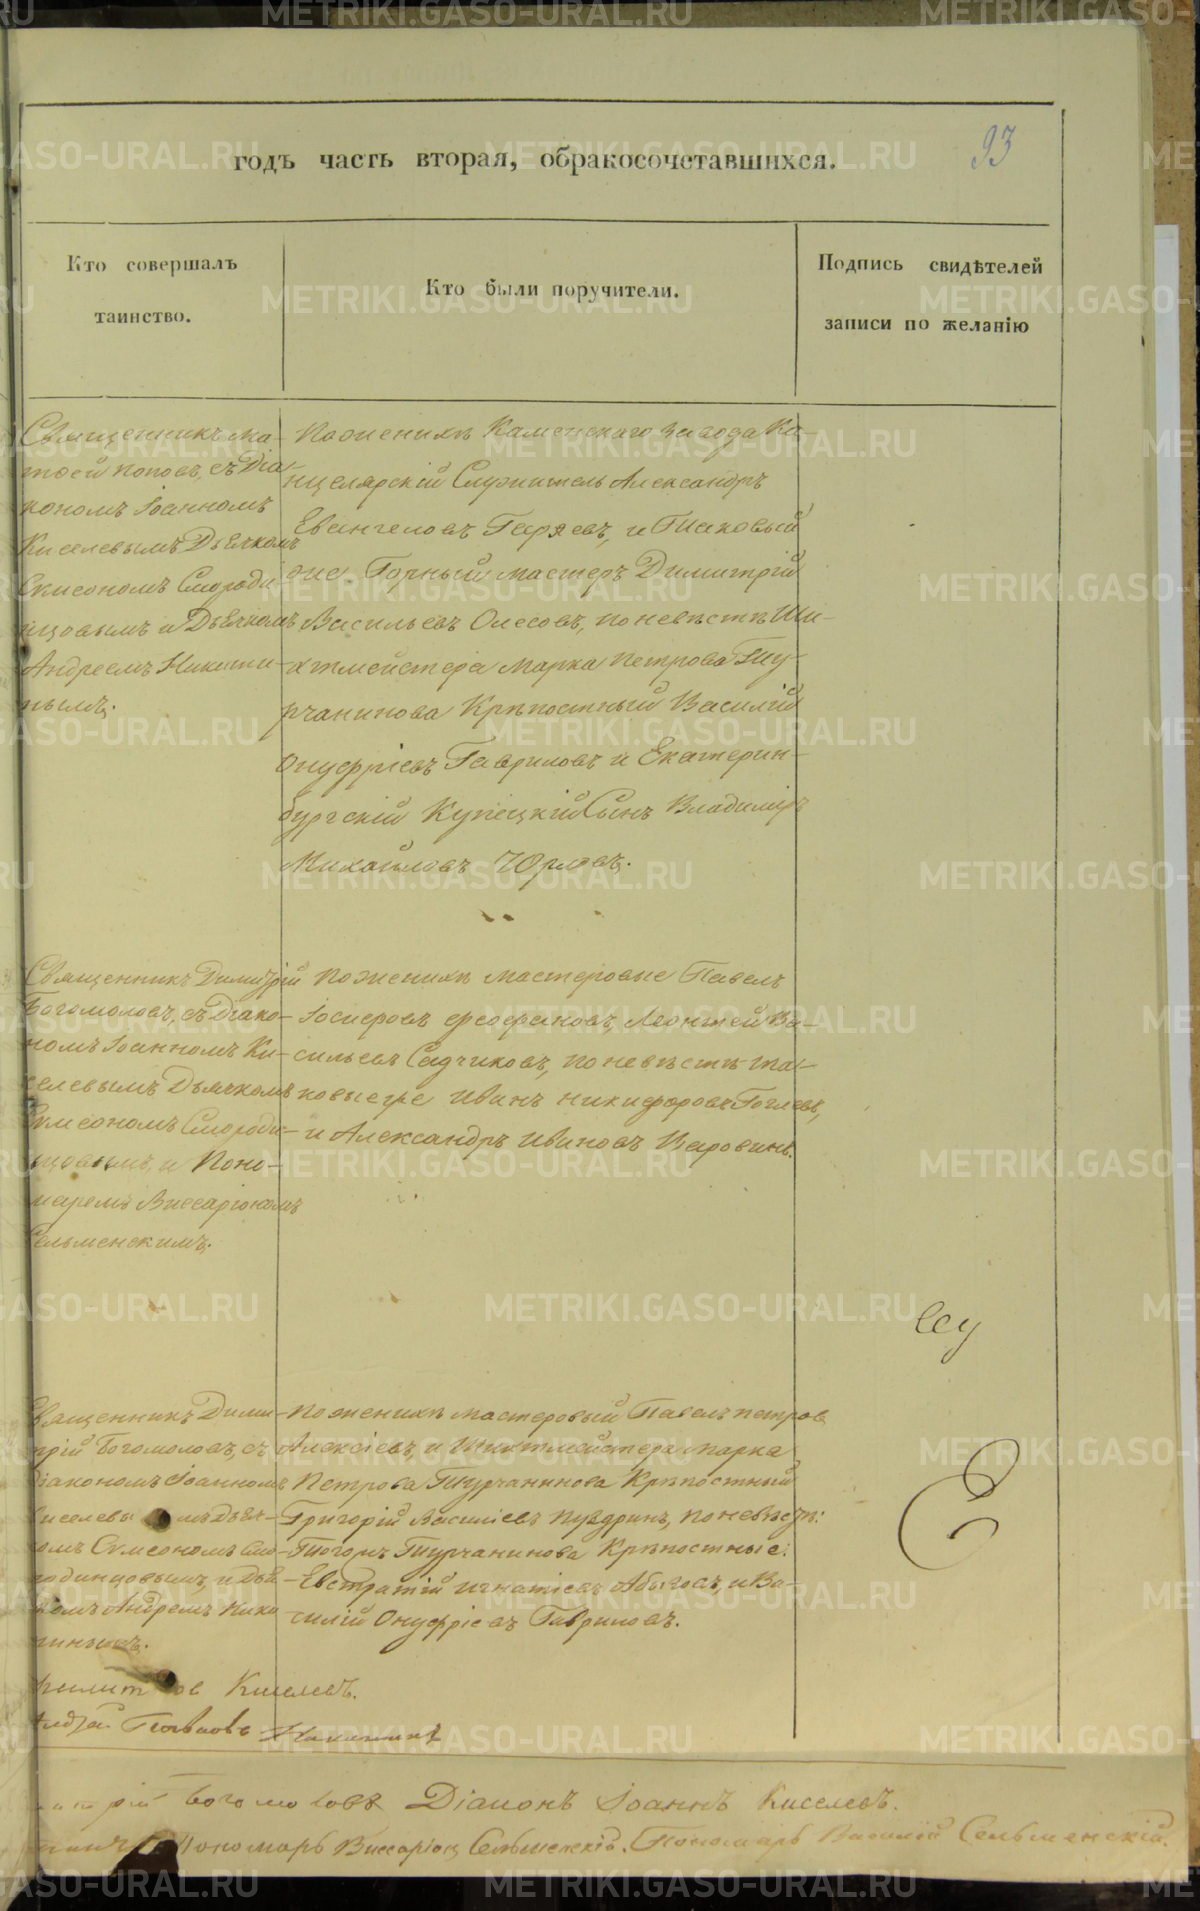 93
годъ часть вторая, обракосочетавшихся.
Кто совершалъ
таинство.
Кто были поручители.
Подпись свидѣтелей
записи по желанію
Священникъ Ма-
тѳей Поповъ, съ Діа-
кономъ Іоанномъ
Киселевымъ Дьячкомъ
Симеономъ Смороди-
нцовымъ и Дьячкомъ
Андреемъ Никити-
нымъ.
По женихѣ Каменскаго Завода Ка-
нцелярскій Служитель Александръ
Евангеловъ Гаряевъ, и Таковый
же Горный мастеръ Димитрій
Васильевъ Олесовъ, по невѣстѣ Ши-
хтмейстера Марка Петрова Ту-
рчанинова Крѣпостный Василій
Онуфріевъ Гавриловъ и Екатерин-
бургскій Купецкій Сынъ Владиміръ
Михайловъ Орловъ.
Священникъ Димитрій
Богомоловъ, съ Діако-
номъ Іоанномъ Ки-
селевымъ Дьячкомъ
Симеономъ Смороди-
нцовымъ, и Поно-
маремъ Виссаріономъ
Сельменскимъ.
По женихѣ мастеровые Павелъ
Іосифовъ Ѳеофановъ, Леонтей Ва-
сильевъ Садчиковъ, по невѣстѣ та-
ковые же Иванъ Никифоровъ
и Александръ Ивановъ Варовинъ.
Священникъ Дими-
трій Богомоловъ, съ
Діакономъ Іоанномъ
Киселевымъ Дьяч-
комъ Симеономъ Смо-
родинцовымъ, и Дья-
чкомъ Андреемъ Ники-
тинымъ.
По женихѣ мастеровый Павелъ Петровъ
Алексіевъ, и Шихтмейстера Марка
Петрова Турчанинова Крѣпостный
Григорій Василіевъ по невѣстѣ:
Тогожъ Турчанинова Крѣпостные:
Евстратій Игнатіевъ и Ва-
силій Онуфріевъ Гавриловъ.
Киселевъ.
Богомоловъ Діаконъ Іоаннъ Киселевъ.
Пономарь Виссаріонъ Сельменскій. Пономарь Василій Сельменскій.
METRIKI.GASO-URAL.RU